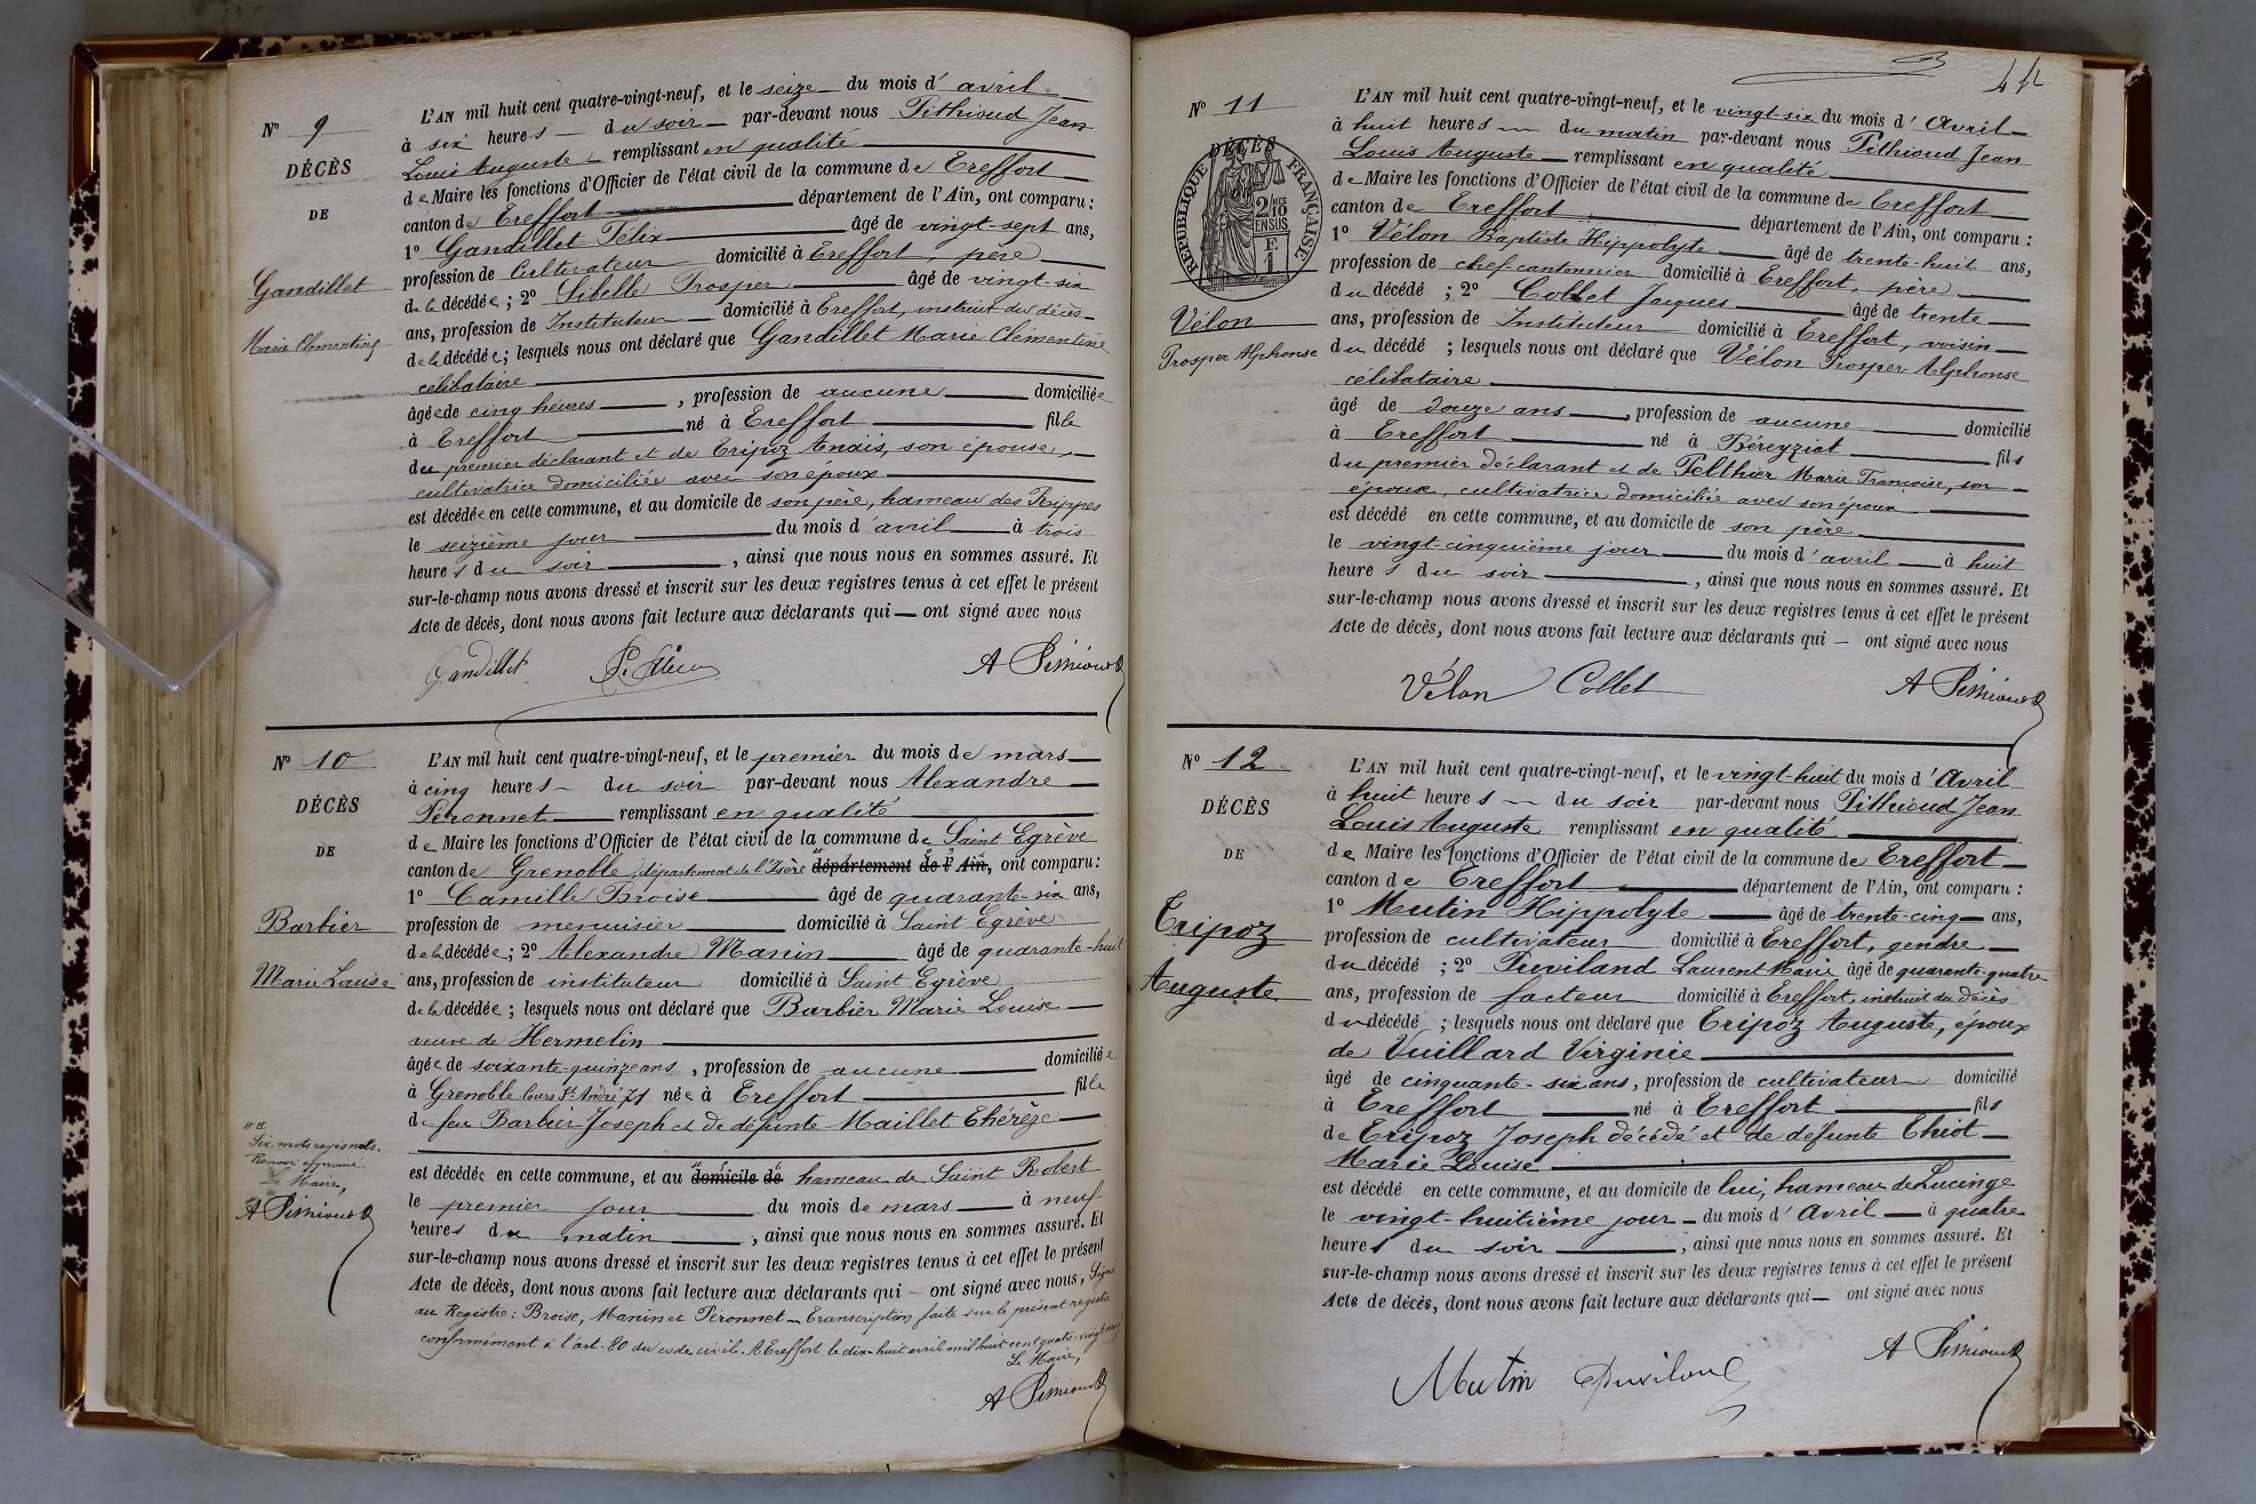 N° 9
DÉCÈS
DE
Gandillet
Marie Clémentine
L'AN mil huit cent quatre-vingt-neuf, et le seize du mois d'avril
à six heures du soir par-devant nous Pithioud Jean
Louis Auguste remplissant en qualité
de Maire les fonctions d'Officier de l'état civil de la commune de Treffort
canton de Treffort département de l'Ain, ont comparu :
1° Gandillet Félix âgé de vingt-sept ans,
profession de Cultivateur domicilié à Treffort, père
de la décédée ; 2° Sibelle Prosper âgé de vingt-six
ans, profession de Instituteur domicilié à Treffort, instruit du décès
de la décédée ; lesquels nous ont déclaré que Gandillet Marie Clémentine
célibataire
âgée de cinq heures, profession de aucune domiciliée
à Treffort né à Treffort fille
du premier déclarant et de Tripoz Anaïs, son épouse,
cultivatrice domiciliée avec son époux
est décédée en cette commune, et au domicile de son père, hameau des Rippes
le seizième jour du mois d'avril à trois
heures du soir, ainsi que nous nous en sommes assuré. Et
sur-le-champ nous avons dressé et inscrit sur les deux registres tenus à cet effet le présent
Acte de décès, dont nous avons fait lecture aux déclarants qui — ont signé avec nous
Gandillet A Pithioud
N° 10
DÉCÈS
DE
Barbier
Marie Louise
L'AN mil huit cent quatre-vingt-neuf, et le premier du mois de mars
à cinq heures du soir par-devant nous Alexandre
Péronnet remplissant en qualité
de Maire les fonctions d'Officier de l'état civil de la commune de Saint Egrève
canton de Grenoble, département de l'Isère département de l'Ain, ont comparu :
1° Camille Broise âgé de quarante-six ans,
profession de menuisier domicilié à Saint Egrève
de la décédée ; 2° Alexandre Manin âgé de quarante-huit
ans, profession de instituteur domicilié à Saint Egrève
de la décédée ; lesquels nous ont déclaré que Barbier Marie Louise
veuve de Hermelin
âgée de soixante-quinze ans, profession de aucune domiciliée
à Grenoble Cours St André 71 née à Treffort fille
de feu Barbier Joseph et de défunte Maillet Thérèze
est décédée en cette commune, et au domicile de hameau de Saint Robert
le premier jour du mois de mars à neuf
heures du matin, ainsi que nous nous en sommes assuré. Et
sur-le-champ nous avons dressé et inscrit sur les deux registres tenus à cet effet le présent
Acte de décès, dont nous avons fait lecture aux déclarants qui — ont signé avec nous, Signé
au Registre : Broise, Manin et Péronnet — Transcription faite sur le présent registre
conformément à l'art. 80 du code civil. A Treffort le dix-huit avril mil huit cent quatre-vingt-neuf
Le Maire,
A Pithioud
Six mots rayés nuls.
Renvoi approuvé.
Le Maire,
A Pithioud
44
N° 11
DÉCÈS
RÉPUBLIQUE FRANÇAISE
2/10 MES
EN SUS
F.
1
Vélon
Prosper Alphonse
L'AN mil huit cent quatre-vingt-neuf, et le vingt-six du mois d'Avril
à huit heures du matin par-devant nous Pithioud Jean
Louis Auguste remplissant en qualité
de Maire les fonctions d'Officier de l'état civil de la commune de Treffort
canton de Treffort département de l'Ain, ont comparu :
1° Vélon Baptiste Hippolyte âgé de trente-huit ans,
profession de chef-cantonnier domicilié à Treffort, père
du décédé ; 2° Collet Jacques âgé de trente
ans, profession de Instituteur domicilié à Treffort, voisin
du décédé ; lesquels nous ont déclaré que Vélon Prosper Alphonse
célibataire
âgé de douze ans, profession de aucune domicilié
à Treffort né à Béreyziat fils
du premier déclarant et de Pelthier Marie Françoise, son
épouse, cultivatrice domiciliée avec son époux
est décédé en cette commune, et au domicile de son père
le vingt-cinquième jour du mois d'avril à huit
heures du soir, ainsi que nous nous en sommes assuré. Et
sur-le-champ nous avons dressé et inscrit sur les deux registres tenus à cet effet le présent
Acte de décès, dont nous avons fait lecture aux déclarants qui — ont signé avec nous
Vélon Collet A Pithioud
N° 12
DÉCÈS
DE
Tripoz
Auguste
L'AN mil huit cent quatre-vingt-neuf, et le vingt-huit du mois d'Avril
à huit heures du soir par-devant nous Pithioud Jean
Louis Auguste remplissant en qualité
de Maire les fonctions d'Officier de l'état civil de la commune de Treffort
canton de Treffort département de l'Ain, ont comparu :
1° Mutin Hippolyte âgé de trente-cinq ans,
profession de cultivateur domicilié à Treffort, gendre
du décédé ; 2° Puviland Laurent Marie âgé de quarante-quatre
ans, profession de facteur domicilié à Treffort, instruit du décès
du décédé ; lesquels nous ont déclaré que Tripoz Auguste, époux
de Vuillard Virginie
âgé de cinquante-six ans, profession de cultivateur domicilié
à Treffort né à Treffort fils
de Tripoz Joseph décédé et de défunte Thiot
Marie Louise
est décédé en cette commune, et au domicile de lui, hameau de Lucinge
le vingt-huitième jour du mois d'Avril à quatre
heures du soir, ainsi que nous nous en sommes assuré. Et
sur-le-champ nous avons dressé et inscrit sur les deux registres tenus à cet effet le présent
Acte de décès, dont nous avons fait lecture aux déclarants qui — ont signé avec nous
Mutin Puviland A Pithioud